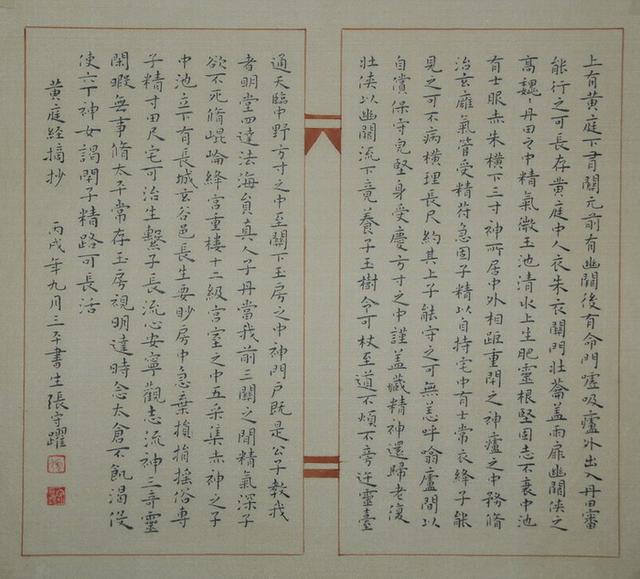 上有黄庭下有關元前有幽闕後有命門噓吸廬外出入丹田審
能行之可長存黄庭中人衣朱衣關門壯蘥蓋兩扉幽闕俠之
高魏魏丹田之中精氣微玉池清水上生肥靈根堅固志不衰中池
有士服赤朱橫下三寸神所居中外相距重閉之神廬之中務脩
治玄廱氣管受精符急固子精以自持宅中有士常衣絳子能
見之可不病橫理長尺約其上子能守之可無恙呼噏廬間以
自償保守完堅身受慶方寸之中謹蓋藏精神還歸老復
壯俠以幽闕流下竟養子玉樹令可杖至道不煩不旁迕靈臺
通天臨中野方寸之中至關下玉房之中神門戶既是公子教我
者明堂四達法海員真人子丹當我前三關之間精氣深子
欲不死脩崐崘絳宫重樓十二級宫室之中五采集赤神之子
中池立下有長城玄谷邑長生要眇房中急棄捐摇俗專
子精寸田尺宅可治生繫子長流心安寧觀志流神三奇靈
閑暇無事脩太平常存玉房視明達時念太倉不飢渴役
使六丁神女謁閉子精路可長活
黄庭経摘抄 丙戌年九月三平書生張守躍